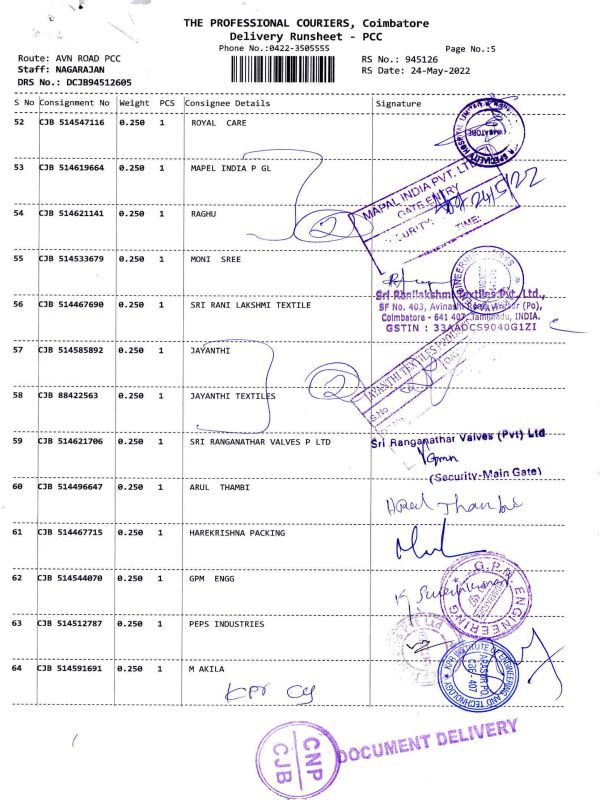 THE PROFESSIONAL COURIERS, Coimbatore
Delivery Runsheet - PCC
Phone No.:0422-3505555 Page No.:5
Route: AVN ROAD PCC RS No.: 945126
Staff: NAGARAJAN RS Date: 24-May-2022
DRS No.: DCJB94512605
S No Consignment No Weight PCS Consignee Details Signature
52 CJB 514547116 0.250 1 ROYAL CARE
53 CJB 514619664 0.250 1 MAPEL INDIA P GL
MAPAL INDIA PVT. LTD
GATE ENTRY
24/5/22
TIME:
54 CJB 514621141 0.250 1 RAGHU
2
55 CJB 514533679 0.250 1 MONI SREE
ENGINEERING WORKS
56 CJB 514467690 0.250 1 SRI RANI LAKSHMI TEXTILE
Sri Ranilakshmi Textiles Pvt. Ltd.,
SF No. 403, Avinashi Road, (Po),
Coimbatore - 641 407, Tamilnadu, INDIA.
GSTIN : 33AADCS9040G1ZI
57 CJB 514585892 0.250 1 JAYANTHI
JAYANTHI TEXTILES
S.No
58 CJB 88422563 0.250 1 JAYANTHI TEXTILES
2
59 CJB 514621706 0.250 1 SRI RANGANATHAR VALVES P LTD
Sri Ranganathar Valves (Pvt) Ltd
(Security-Main Gate)
60 CJB 514496647 0.250 1 ARUL THAMBI
61 CJB 514467715 0.250 1 HAREKRISHNA PACKING
62 CJB 514544070 0.250 1 GPM ENGG
G.P.M. ENGINEERING
63 CJB 514512787 0.250 1 PEPS INDUSTRIES
64 CJB 514591691 0.250 1 M AKILA
KPR INSTITUTE OF ENGINEERING AND TECHNOLOGY
ARASUR PO,
CBE. 407
KPR
CNP
CJB
DOCUMENT DELIVERY